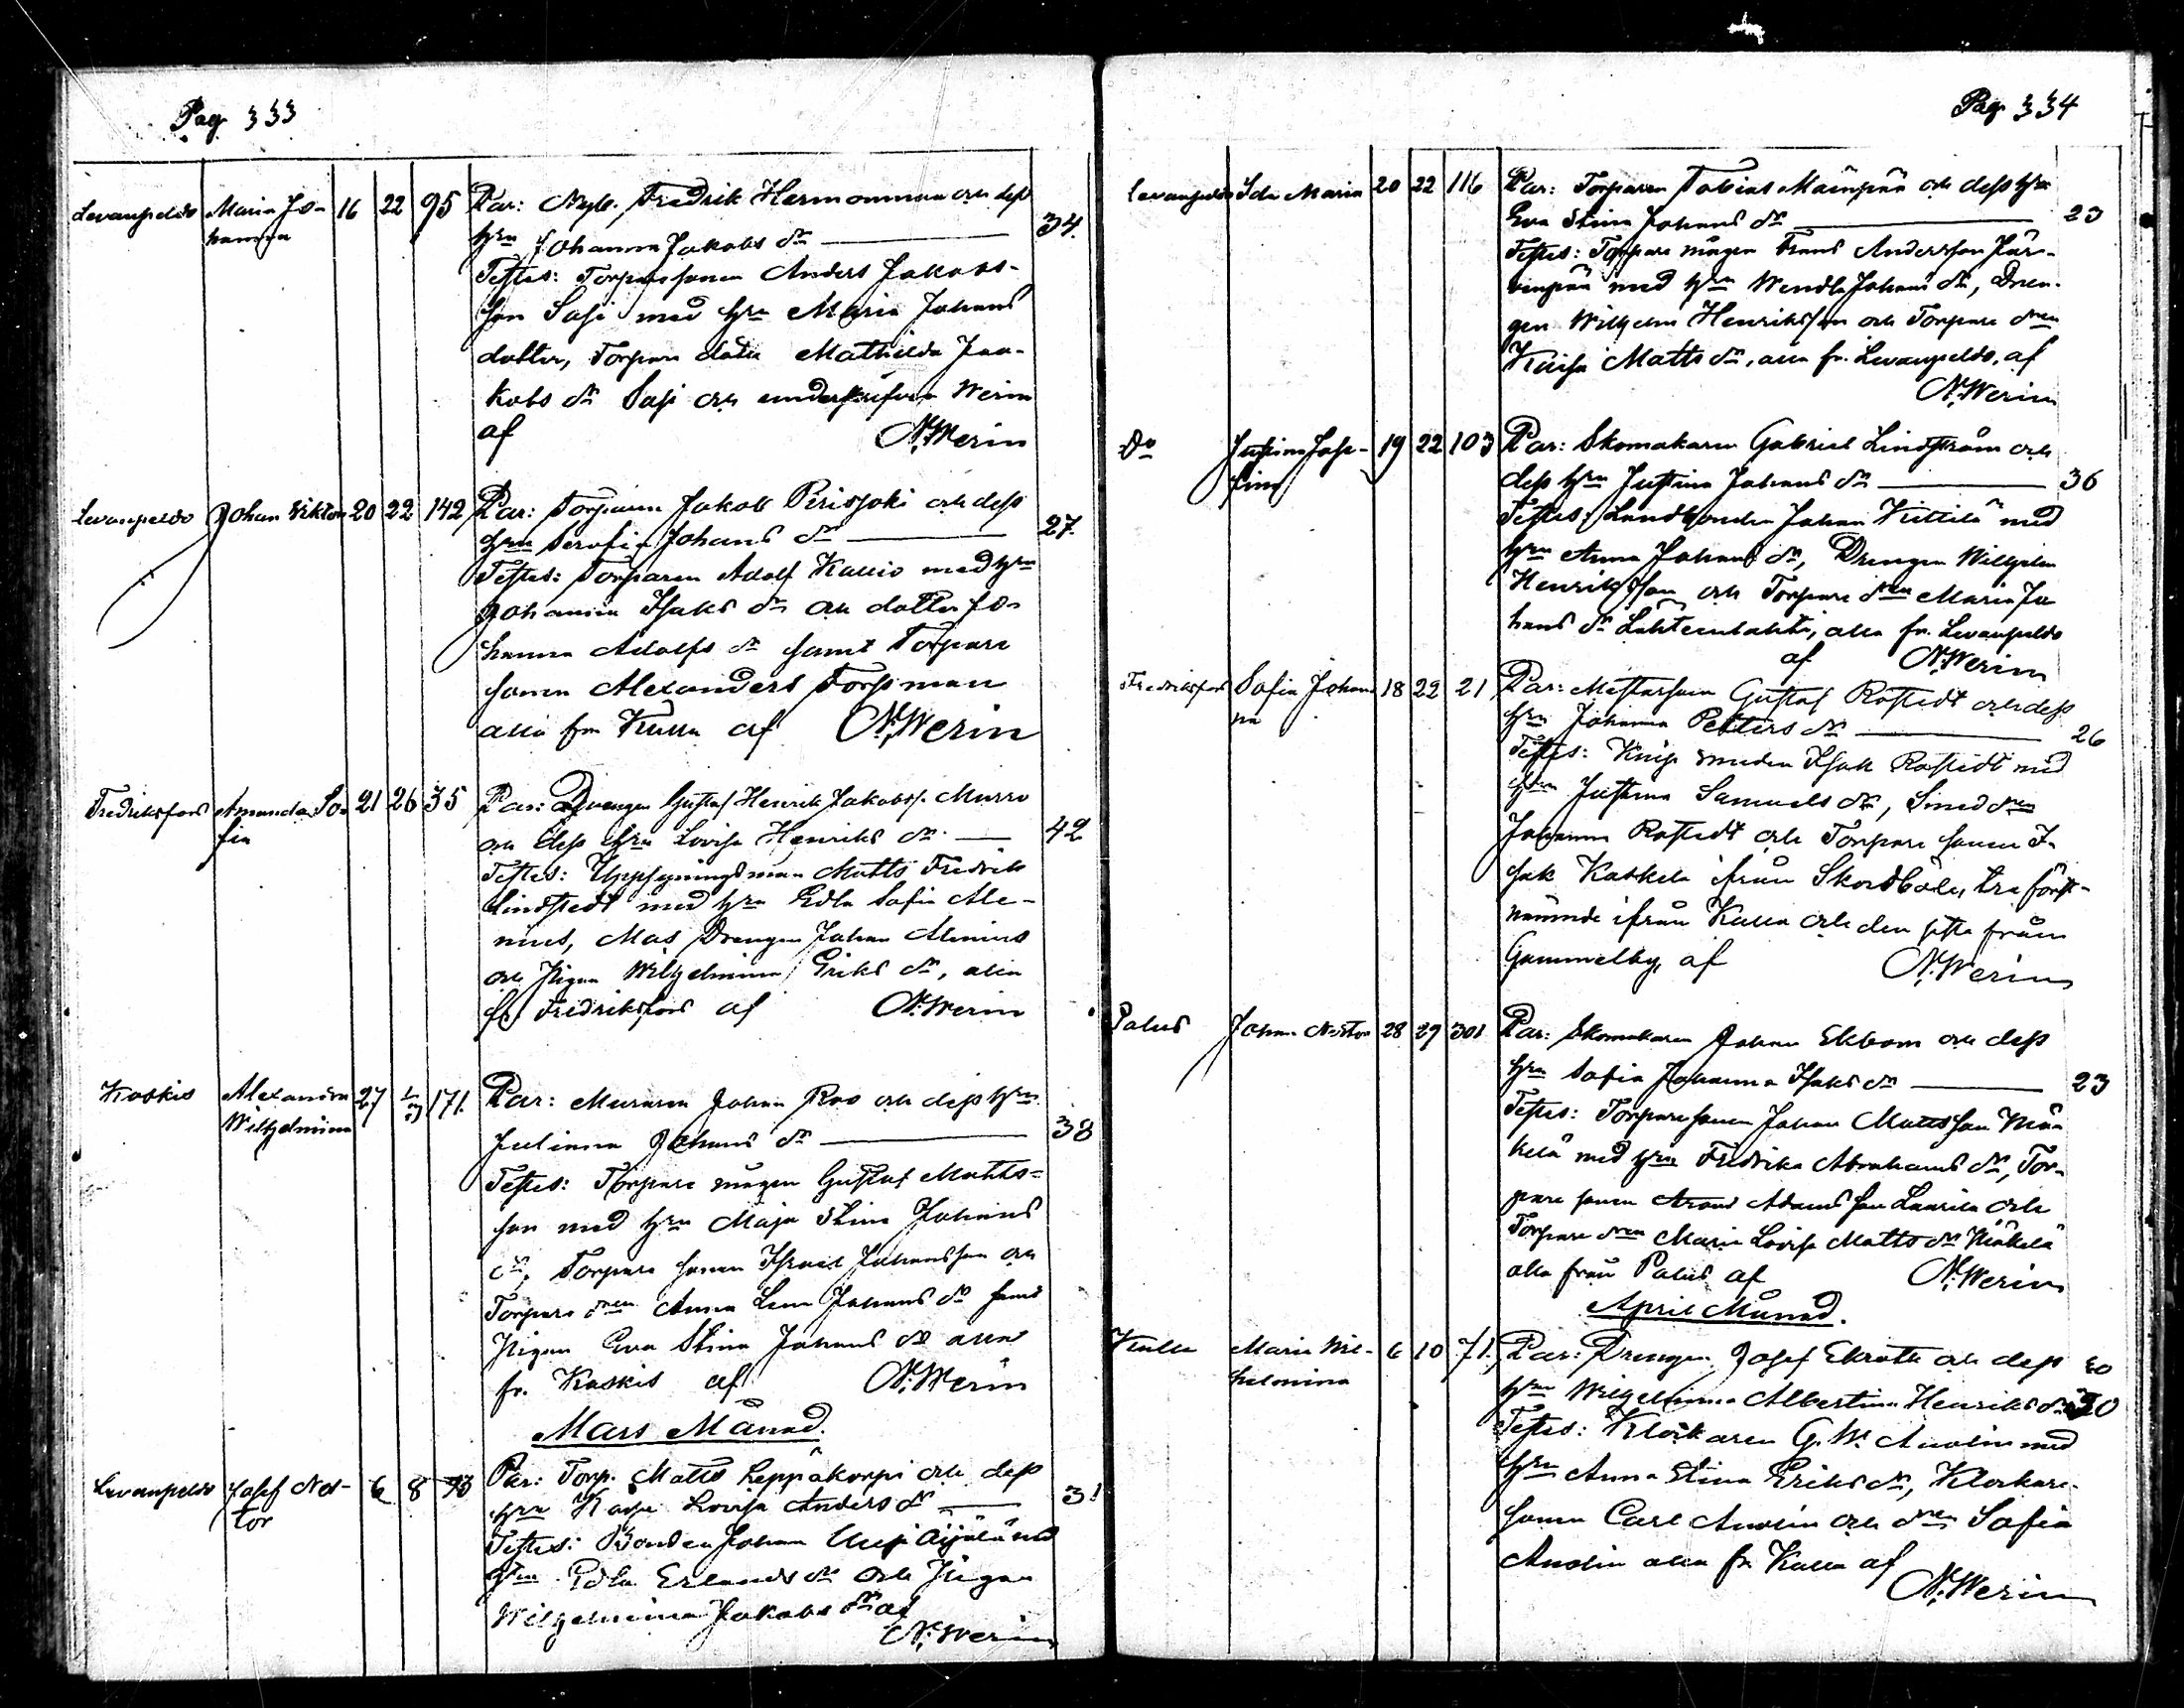 Pag 333
Levanpelds Maria Jo- 16 22 95 Par: Nyb. Fredrik Hermonman och dess
hanna hru Johanna Jakobs dr 34.
Testes: Torparesonen Anders Jakobs-
son Sasi med hru Maria Johans
dotter, Torpare dotter Mathilda Jaa-
kobs dr Sasi och undertecknad Werin
af N. Werin
Levanpeldo Johan Viktor 20 22 142 Par: Torparen Jakob Perisjoki och dess
hru Serafia Johans dr 27.
Testes: Torparen Adolf Kallio med hru
Johanna Isaks dr och dotter Jo-
hanna Adolfs dr samt Torpare
sonen Alexanders Forssman
alla frn Kulla af N. Werin
Fredriksfors Amanda So- 21 26 35 Par: Drengen Gustaf Henrik Jakobss. Murro
fia och dess hru Lovisa Henriks dr 42
Testes: Uppsyningsman Matts Fredrik
Lindstedt med hru Edla Sofia Ale-
nius, Mas Drengen Johan Alenius
och Pigan Wilhelmina Eriks dr, alla
fr. Fredriksfors af N. Werin
Koskis Alexandra 27 171. Par: Muraren Johan Roo och dess hru
Wilhelmina Julianna Johans dr 38
Testes: Torpare mågen Gustaf Matts-
son med hru Maja Stina Johans
dr, Torpare sonen Israel Johansson och
Torpare dren Anna Lena Johans dr samt
Pigan Eva Stina Johans dr alla
fr. Koskis af N. Werin
Mars Månad.
Levanpeldo Josef Nes- 6 8 93 Par: Torp. Matts Leppäkorpi och dess
tor hru Kajsa Lovisa Anders dr 31
Testes: Bonden Johan Uusi Äijälä med
hru Edla Erlands dr och Pigan
Wilhelmina Jakobs dr af
N. Werin
Pag 334
Levanpeldo Ida Maria 20 22 116 Par: Torparen Tobias Mäenpää och dess hru
Eva Stina Johans dr 23
Testes: Torpare mågen Frans Andersson Jär-
venpää med hru Wendla Johans dr, Dren-
gen Wilhelm Henriksson och Torpare dren
Kaisa Matts dr, alla fr. Levanpeldo, af
N. Werin
Do Justina Jose- 19 22 103 Par: Skomakaren Gabriel Lindström och
fina dess hru Justina Johans dr 36
Testes: Landbonden Johan Kittilä med
hru Anna Johans dr, Drengen Wilhelm
Henriksson och Torpare dren Maria Jo
hans dr Lähteenlahti, alla fr. Levanpeldo
af N. Werin
Fredriksfors Sofia Johan 18 22 21 Par: Mästarsven Gustaf Rostedt och dess
na hru Johanna Petters dr 26
Testes: Knip smeden Isak Rostedt med
hru Justina Samuels dr, Smed dren
Johanna Rostedt och Torpare sonen I-
sak Kaskela ifrån Skordböle, tre först-
nämnde ifrån Kulla och den sista från
Gammelby, af N. Werin
Palus Johan Nestor 28 29 301 Par: Skomakaren Johan Ekbom och dess
hru Sofia Johanna Isaks dr 23
Testes: Torpare sonen Johan Mattsson Mä-
kelä med hru Fredrika Abrahams dr, Tor-
pare sonen Arond Adamsson Laurila och
Torpare dren Maria Lovisa Matts dr Mäkelä
alla från Palus af N. Werin
April Månad.
Kulla Maria Wil- 6 10 71. Par: Drengen Josef Ekroth och dess
helmina hru Wilhelmina Albertina Henriks dr 30
Testes: Klockaren G. W. Anolin med
hru Anna Stina Eriks dr, Klockare-
sonen Carl Anolin och dren Sofia
Anolin alla fr. Kulla af
N. Werin